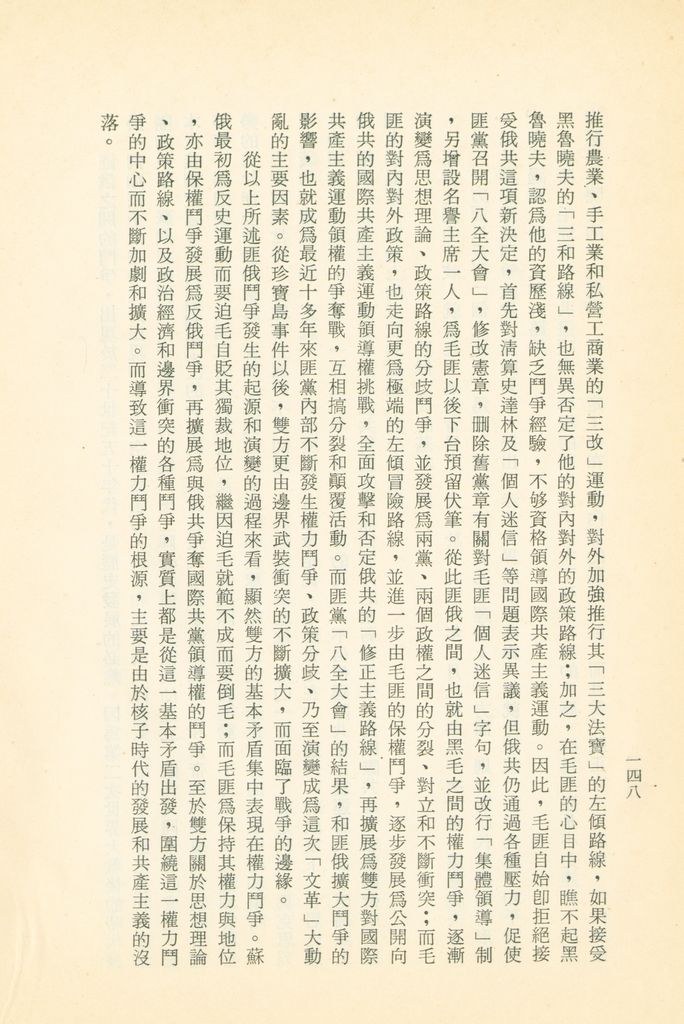 推行農業、手工業和私營工商業的「三改」運動，對外加強推行其「三大法寶」的左傾路線，如果接受
黑魯曉夫的「三和路線」，也無異否定了他的對內對外的政策路線；加之，在毛匪的心目中，瞧不起黑
魯曉夫，認爲他的資歷淺，缺乏鬥爭經驗，不够資格領導國際共產主義運動。因此，毛匪自始卽拒絕接
受俄共這項新決定，首先對淸算史達林及「個人迷信」等問題表示異議，但俄共仍通過各種壓力，促使
匪黨召開「八全大會」，修改憲章，刪除舊黨章有關對毛匪「個人迷信」字句，並改行「集體領導」制
，另增設名譽主席一人，爲毛匪以後下台預留伏筆。從此匪俄之間，也就由黑毛之間的權力鬥爭，逐漸
演變爲思想理論、政策路線的分歧鬥爭，並發展爲兩黨、兩個政權之間的分裂、對立和不斷衝突；而毛
匪的對內對外政策，也走向更爲極端的左傾冒險路線，並進一步由毛匪的保權鬥爭，逐步發展爲公開向
俄共的國際共產主義運動領導權挑戰，全面攻擊和否定俄共的「修正主義路線」，再擴展爲雙方對國際
共產主義運動領權的爭奪戰，互相搞分裂和顛覆活動。而匪黨「八全大會」的結果，和匪俄擴大鬥爭的
影響，也就成爲最近十多年來匪黨內部不斷發生權力鬥爭、政策分歧、乃至演變成爲這次「文革」大動
亂的主要因素。從珍寶島事件以後，雙方更由邊界武裝衝突的不斷擴大，而面臨了戰爭的邊緣。
從以上所述匪俄鬥爭發生的起源和演變的過程來看，顯然雙方的基本矛盾集中表現在權力鬥爭。蘇
俄最初爲反史運動而要迫毛自貶其獨裁地位，繼因迫毛就範不成而要倒毛；而毛匪爲保持其權力與地位
，亦由保權鬥爭發展爲反俄鬥爭，再擴展爲與俄共爭奪國際共黨領導權的鬥爭。至於雙方關於思想理論
、政策路線、以及政治經濟和邊界衝突的各種鬥爭，實質上都是從這一基本矛盾出發，圍繞這一權力鬥
爭的中心而不斷加劇和擴大。而導致這一權力鬥爭的根源，主要是由於核子時代的發展和共產主義的沒
落。
一四八